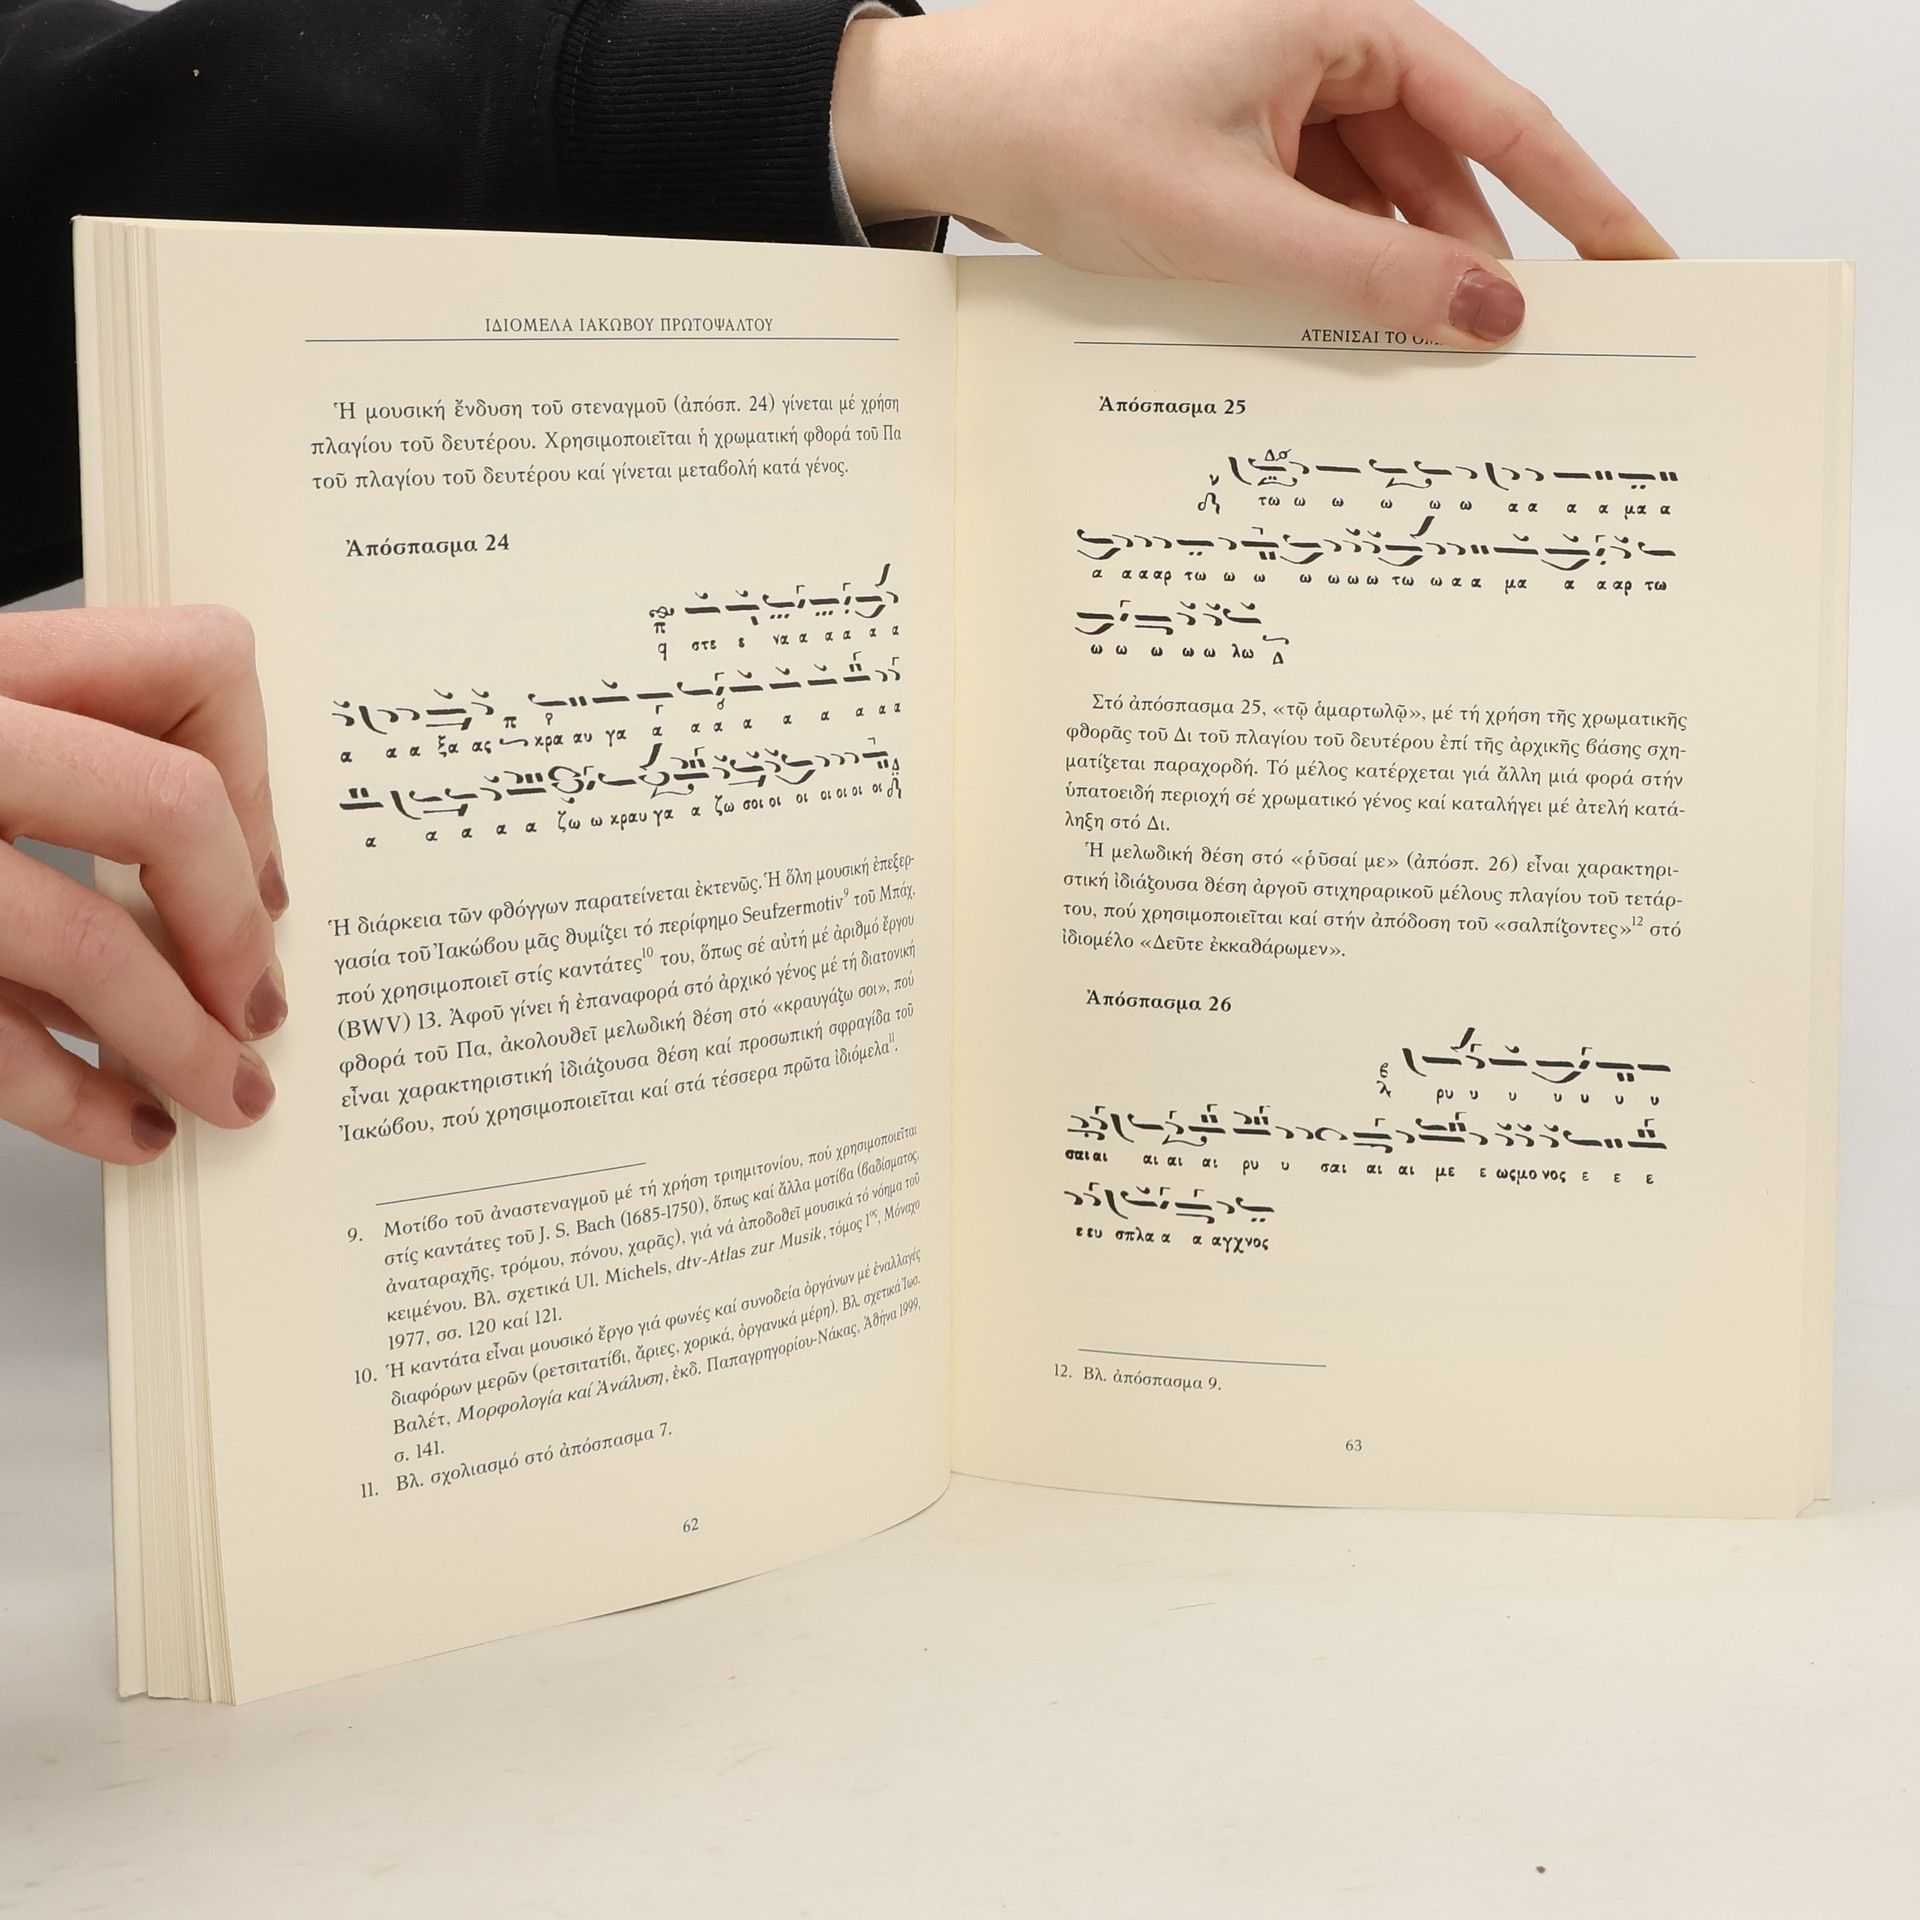 ΙΔΙΟΜΕΛΑ ΙΑΚΩΒΟΥ ΠΡΩΤΟΨΑΛΤΟΥ
Ἡ μουσική ἔνδυση τοῦ στεναγμοῦ (ἀπόσπ. 24) γίνεται μέ χρήση
πλαγίου τοῦ δευτέρου. Χρησιμοποιεῖται ἡ χρωματική φθορά τοῦ Πα
τοῦ πλαγίου τοῦ δευτέρου καί γίνεται μεταβολή κατά γένος.
Ἀπόσπασμα 24
στε ε να α α α α α
α α α ξα ας κρα αυ γα α α α α α α α α
α α α α α ζω ω κραυ γα α ζω σοι οι οι οι οι οι οι
Ἡ διάρκεια τῶν φθόγγων παρατείνεται ἐκτενῶς. Ἡ ὅλη μουσική ἐπεξερ-
γασία τοῦ Ἰακώβου μᾶς θυμίζει τό περίφημο Seufzermotiv9 τοῦ Μπάχ,
πού χρησιμοποιεῖ στίς καντάτες10 του, ὅπως σέ αὐτή μέ ἀριθμό ἔργου
(BWV) 13. Ἀφοῦ γίνει ἡ ἐπαναφορά στό ἀρχικό γένος μέ τή διατονική
φθορά τοῦ Πα, ἀκολουθεῖ μελωδική θέση στό «κραυγάζω σοι», πού
εἶναι χαρακτηριστική ἰδιάζουσα θέση καί προσωπική σφραγίδα τοῦ
Ἰακώβου, πού χρησιμοποιεῖται καί στά τέσσερα πρῶτα ἰδιόμελα11.
9. Μοτίβο τοῦ ἀναστεναγμοῦ μέ τή χρήση τριημιτονίου, πού χρησιμοποιεῖται
στίς καντάτες τοῦ J. S. Bach (1685-1750), ὅπως καί ἄλλα μοτίβα (βαδίσματος,
ἀναταραχῆς, τρόμου, πόνου, χαρᾶς), γιά νά ἀποδοθεῖ μουσικά τό νόημα τοῦ
κειμένου. Βλ. σχετικά Ul. Michels, dtv-Atlas zur Musik, τόμος 1ος, Μόναχο
1977, σσ. 120 καί 121.
10. Ἡ καντάτα εἶναι μουσικό ἔργο γιά φωνές καί συνοδεία ὀργάνων μέ ἐναλλαγές
διαφόρων μερῶν (ρετσιτατίβι, ἄριες, χορικά, ὀργανικά μέρη). Βλ. σχετικά Ἰωσ.
Βαλέτ, Μορφολογία καί Ἀνάλυση, ἐκδ. Παπαγρηγορίου-Νάκας, Ἀθήνα 1999,
σ. 141.
11. Βλ. σχολιασμό στό ἀπόσπασμα 7.
62
ΑΤΕΝΙΣΑΙ ΤΟ
Ἀπόσπασμα 25
τω ω ω ω ω ω α α α α μα α
α α α αρ τω ω ω ω ω ω ω τω ω α α μα α α αρ τω
ω ω ω ω ω λω Δ
Στό ἀπόσπασμα 25, «τῷ ἁμαρτωλῷ», μέ τή χρήση τῆς χρωματικῆς
φθορᾶς τοῦ Δι τοῦ πλαγίου τοῦ δευτέρου ἐπί τῆς ἀρχικῆς βάσης σχη-
ματίζεται παραχορδή. Τό μέλος κατέρχεται γιά ἄλλη μιά φορά στήν
ὑπατοειδή περιοχή σέ χρωματικό γένος καί καταλήγει μέ ἀτελή κατά-
ληξη στό Δι.
Ἡ μελωδική θέση στό «ῥῦσαί με» (ἀπόσπ. 26) εἶναι χαρακτηρι-
στική ἰδιάζουσα θέση ἀργοῦ στιχηραρικοῦ μέλους πλαγίου τοῦ τετάρ-
του, πού χρησιμοποιεῖται καί στήν ἀπόδοση τοῦ «σαλπίζοντες»12 στό
ἰδιομέλο «Δεῦτε ἐκκαθάρωμεν».
Ἀπόσπασμα 26
ρυ υ υ υ υ υ υ
σαι αι αι αι αι ρυ υ σαι αι αι με ε ως μο νος ε ε ε
ε ευ σπλα α α αγχνος
12. Βλ. ἀπόσπασμα 9.
63